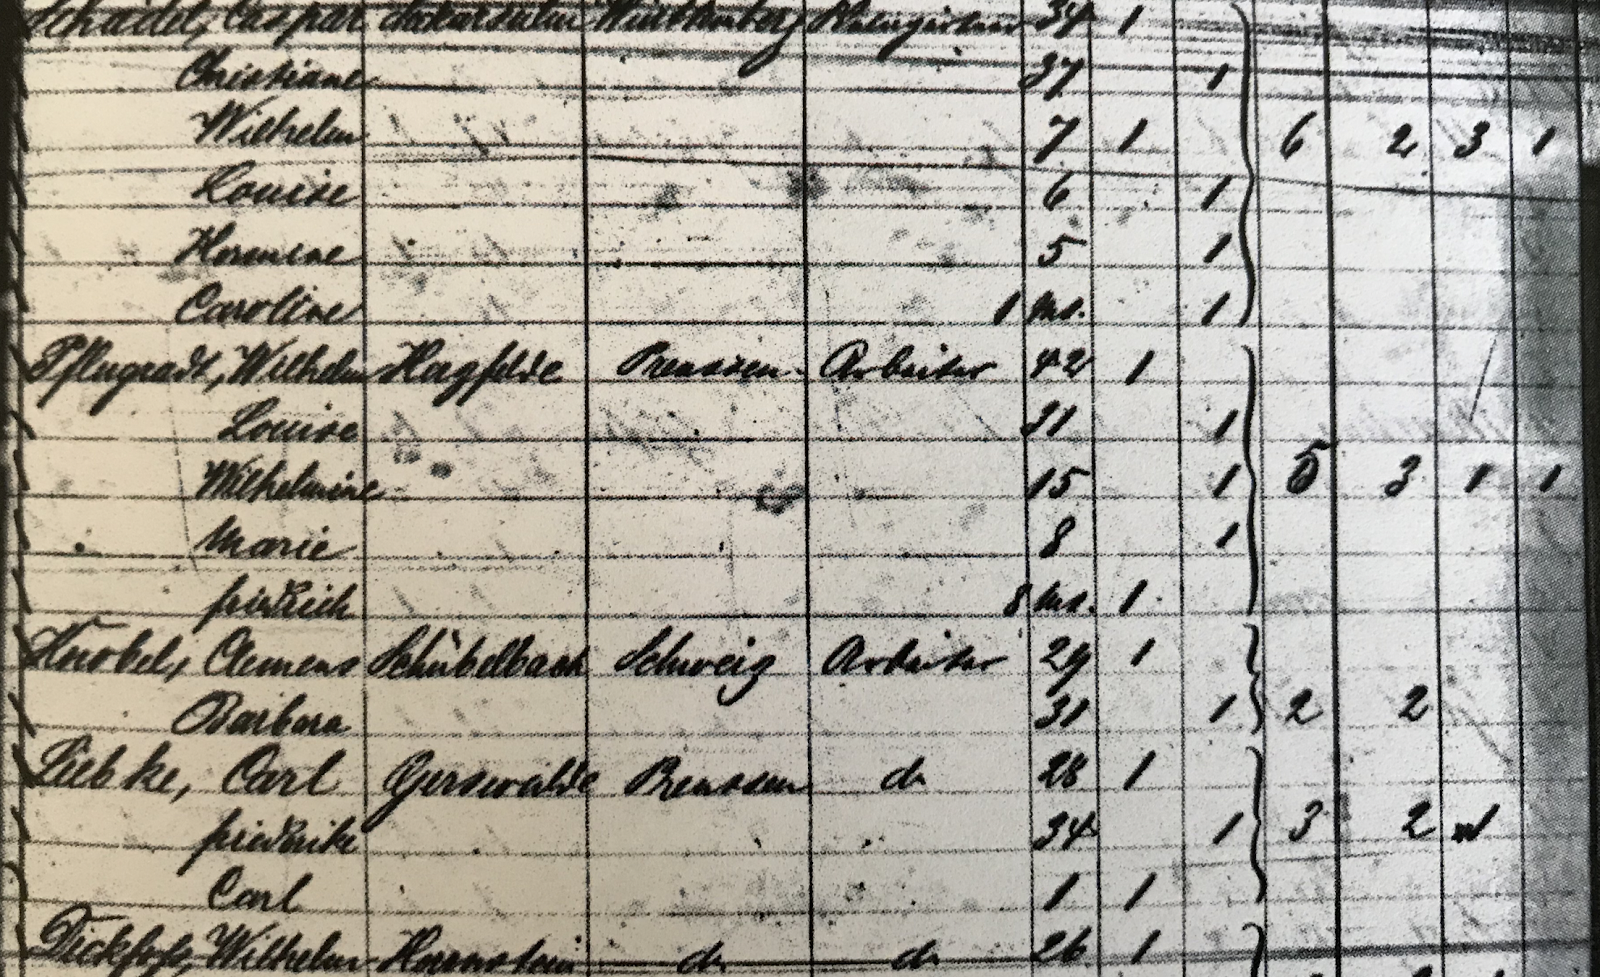 Schädel, Caspar Neckarsulm Württemberg Weingärtner 34 1
Christiane 37 1
Wilhelm 7 1 6 2 3 1
Louise 6 1
Hermine 5 1
Caroline 1 Mo. 1
Pflugradt, Wilhelm Hagfelde Preussen Arbeiter 42 1
Louise 31 1
Wilhelmine 15 1 5 3 1 1
Marie 8 1
Friedrich 8 Mo. 1
Knobel, Clemens Schübelbach Schweiz Arbeiter 29 1
Barbara 31 1 2 2
Liebke, Carl Gerswalde Preussen do 28 1
Friederike 34 1 3 2 1
Carl 1 1
Wilhelm do do 26 1